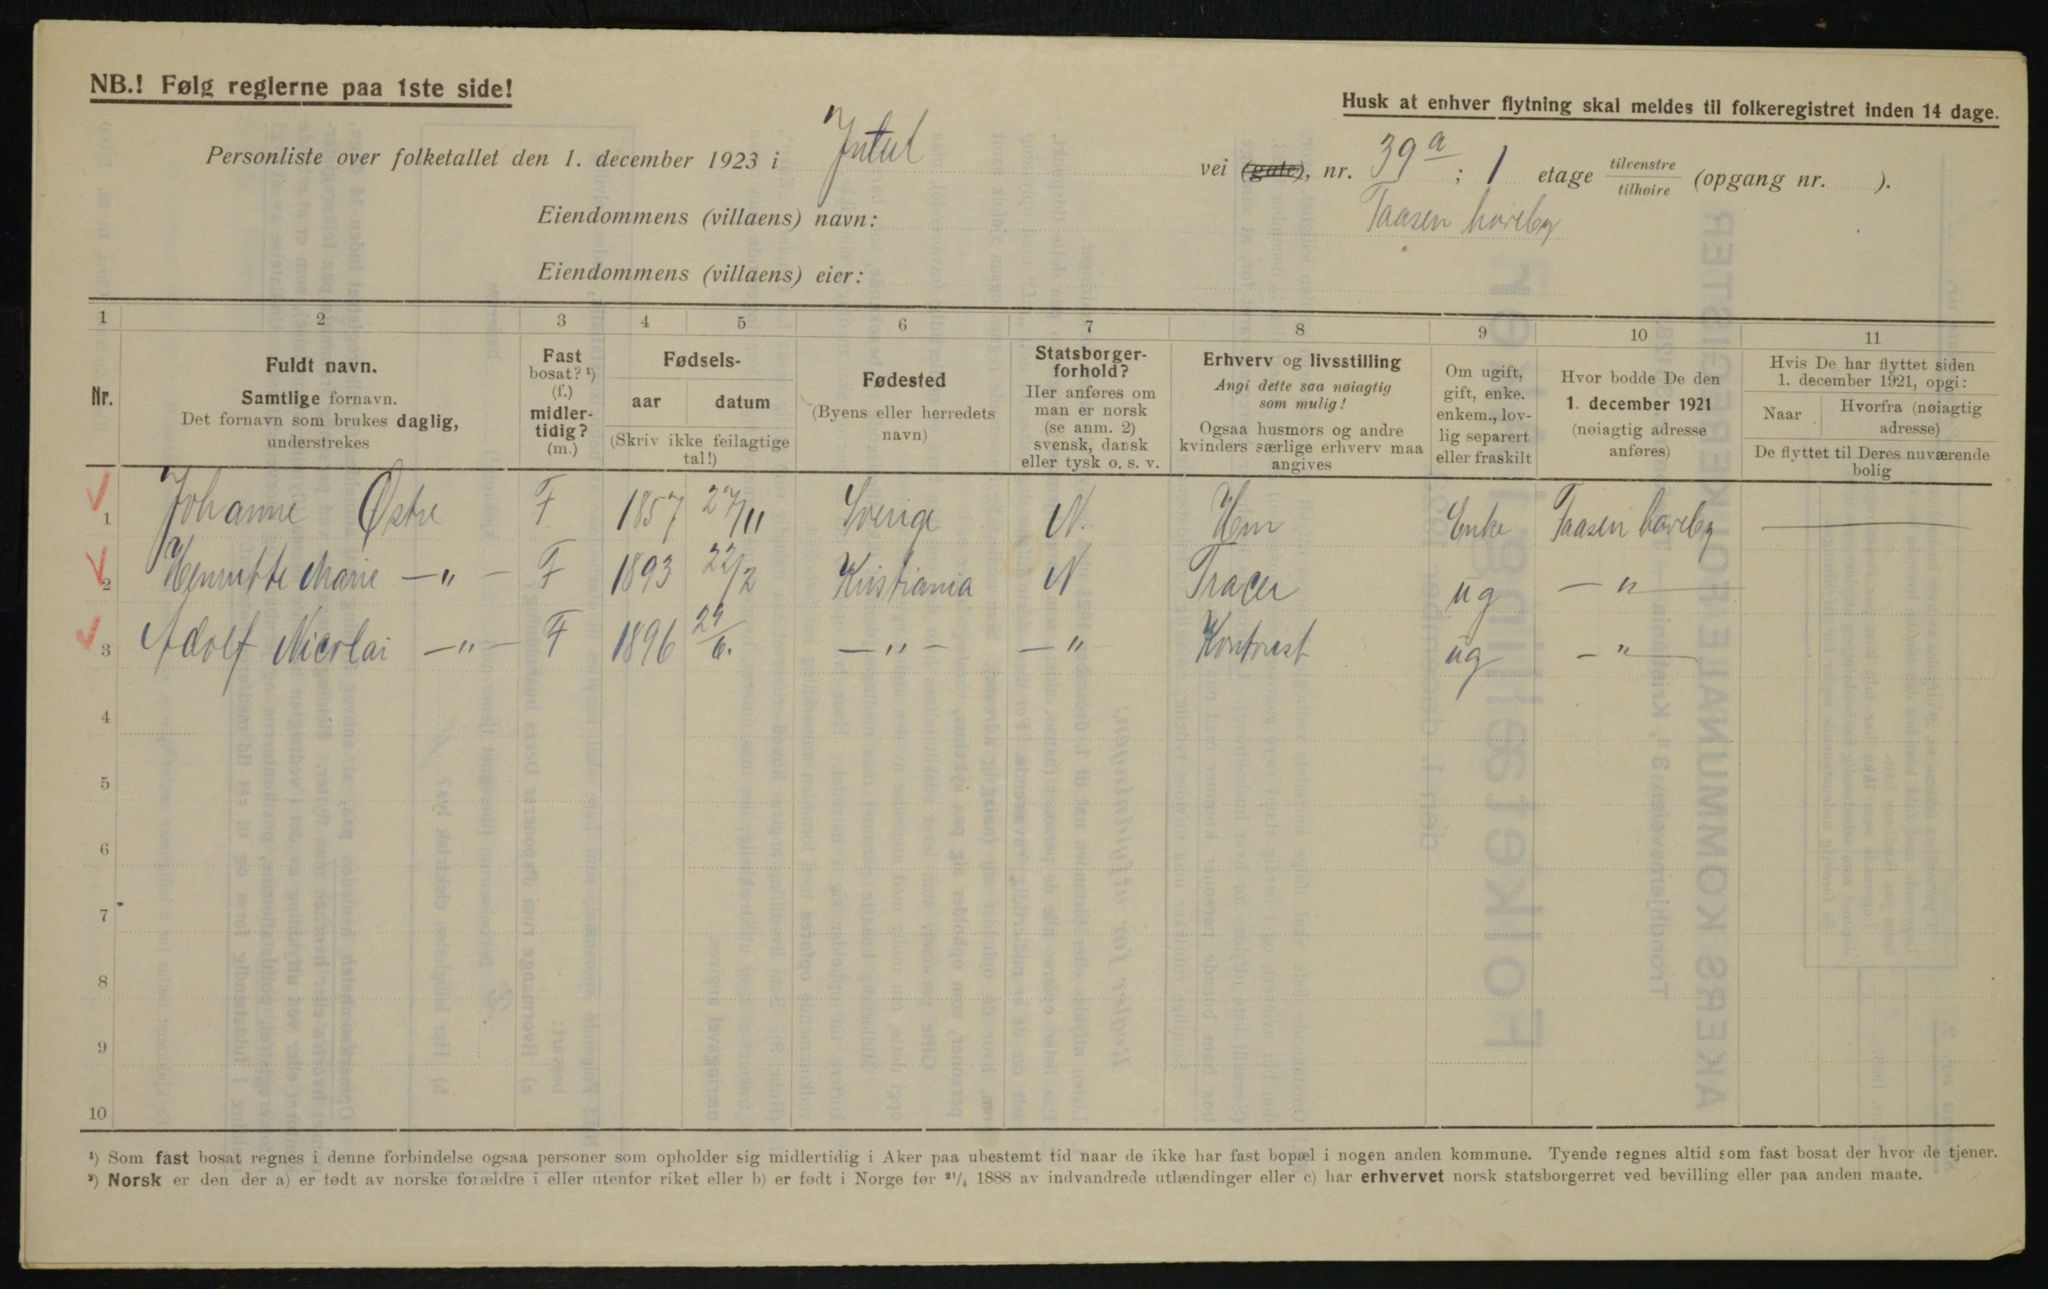 NB.! Følg reglerne paa 1ste side!
Husk at enhver flytning skal meldes til folkeregistret inden 14 dage.
Personliste over folketallet den 1. december 1923 i Jutul vei (gate), nr. 39 a ; 1 etage tilvenstre tilhøire (opgang nr. ).
Eiendommens (villaens) navn: Taasen haveby
Eiendommens (villaens) eier:
1 2 3 4 5 6 7 8 9 10 11
Nr.
Fuldt navn. Samtlige fornavn. Det fornavn som brukes daglig, understrekes
Fast bosat? ¹) (f.) midlertidig? (m.)
Fødsels- aar datum (Skriv ikke feilagtige tal!)
Fødested (Byens eller herredets navn)
Statsborgerforhold? Her anføres om man er norsk (se anm. 2) svensk, dansk eller tysk o. s. v.
Erhverv og livsstilling Angi dette saa nøiagtig som mulig! Ogsaa husmors og andre kvinders særlige erhverv maa angives
Om ugift, gift, enke. enkem., lovlig separert eller fraskilt
Hvor bodde De den 1. december 1921 (nøiagtig adresse anføres)
Hvis De har flyttet siden 1. december 1921, opgi: Naar Hvorfra (nøiagtig adresse) De flyttet til Deres nuværende bolig
1 Johanne Østre F 1857 27/11 Sverige N. Hem Enke Taasen haveby —
2 Henriette Marie — " — F 1893 22/2 Kristiania N Tracer ug — " —
3 Adolf Nicolai — " — F 1896 29/6. — " — — " — Kontorist ug — " —
4
5
6
7
8
9
10
¹) Som fast bosat regnes i denne forbindelse ogsaa personer som opholder sig midlertidig i Aker paa ubestemt tid naar de ikke har fast bopæl i nogen anden kommune. Tyende regnes altid som fast bosat der hvor de tjener.
²) Norsk er den der a) er født av norske forældre i eller utenfor riket eller b) er født i Norge før ²¹/₄ 1888 av indvandrede utlændinger eller c) har erhvervet norsk statsborgerret ved bevilling eller paa anden maate.